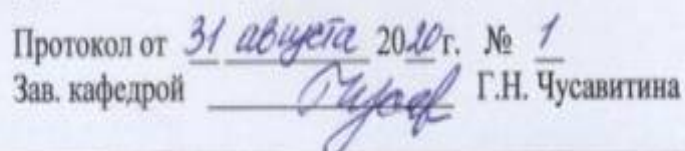 Протокол от 31 августа 2020 г. № 1
Зав. кафедрой Г.Н. Чусавитина